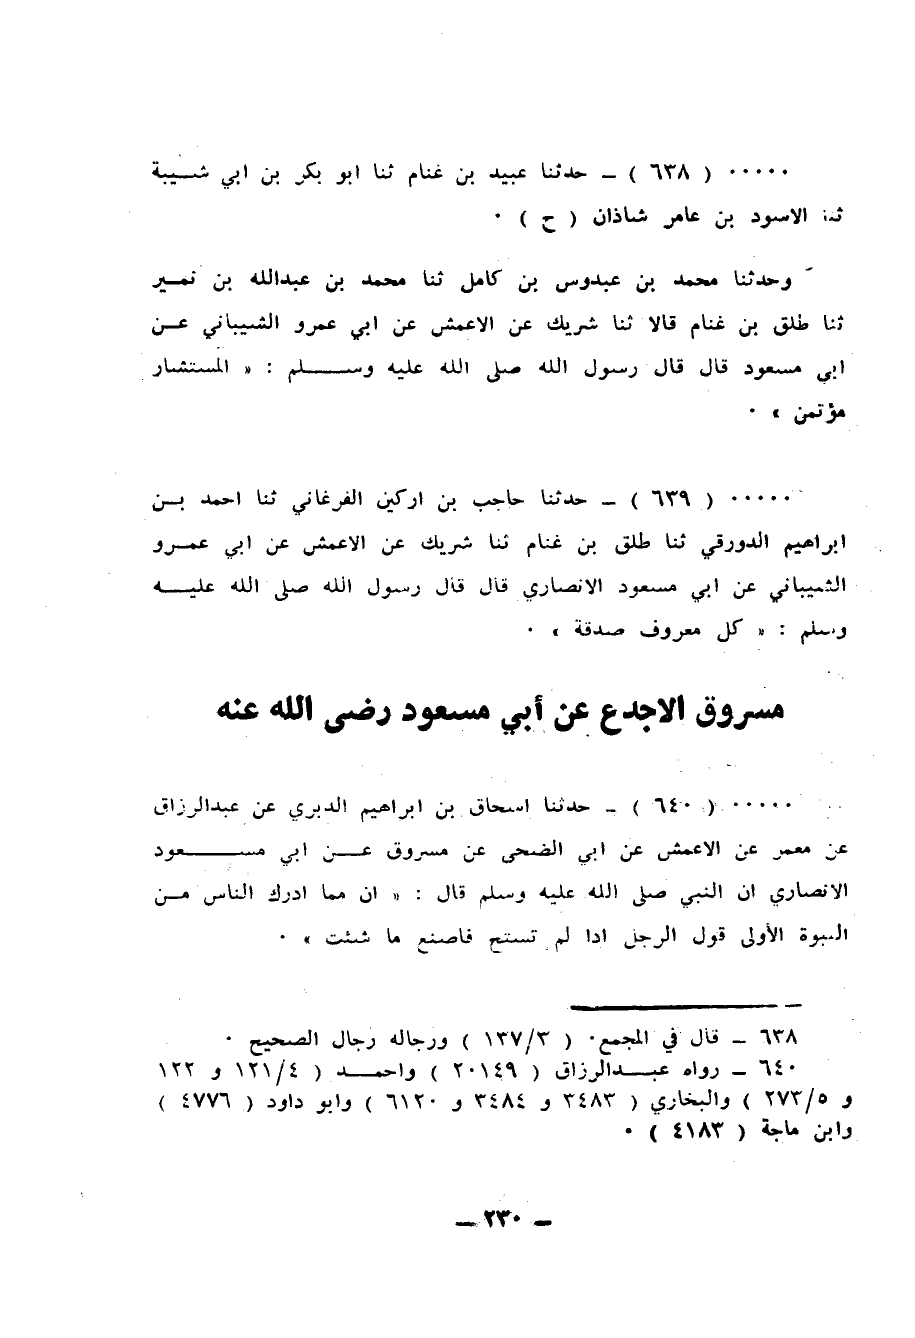 ٠٠٠٠٠ ( ٦٣٨ ) ــ حدثنا عبيد بن غنام ثنا ابو بكر بن ابي شـــيبة
ثنا الاسود بن عامر شاذان ( ح ) ٠
وحدثنا محمد بن عبدوس بن كامل ثنا محمد بن عبدالله بن نمـــير
ثنا طلق بن غنام قالا ثنا شريك عن الاعمش عن ابي عمرو الشيباني عـــن
ابي مسعود قال قال رسول الله صلى الله عليه وســـــلم : « المستشار
مؤتمن » ٠
٠٠٠٠٠ ( ٦٣٩ ) ــ حدثنا حاجب بن اركين الفرغاني ثنا احمد بـــن
ابراهيم الدورقي ثنا طلق بن غنام ثنا شريك عن الاعمش عن ابي عمـــرو
الشيباني عن ابي مسعود الانصاري قال قال رسول الله صلى الله عليـــه
وسلم : « كل معروف صدقة » ٠
مسروق الاجدع عن أبي مسعود رضى الله عنه
٠٠٠٠٠ ( ٦٤٠ ) ــ حدثنا اسحاق بن ابراهيم الدبري عن عبدالرزاق
عن معمر عن الاعمش عن ابي الضحى عن مسروق عـــن ابي مســـــعود
الانصاري ان النبي صلى الله عليه وسلم قال : « ان مما ادرك الناس مـــن
النبوة الأولى قول الرجل اذا لم تستح فاصنع ما شئت » ٠
٦٣٨ ــ قال في المجمع ( ١٣٧/٣ ) ورجاله رجال الصحيح ٠
٦٤٠ ــ رواه عبـــدالرزاق ( ٢٠١٤٩ ) واحمـــد ( ١٢١/٤ و ١٢٢
و ٢٧٣/٥ ) والبخاري ( ٣٤٨٣ و ٣٤٨٤ و ٦١٢٠ ) وابو داود ( ٤٧٧٦ )
وابن ماجة ( ٤١٨٣ ) ٠
ــ ٢٣٠ ــ